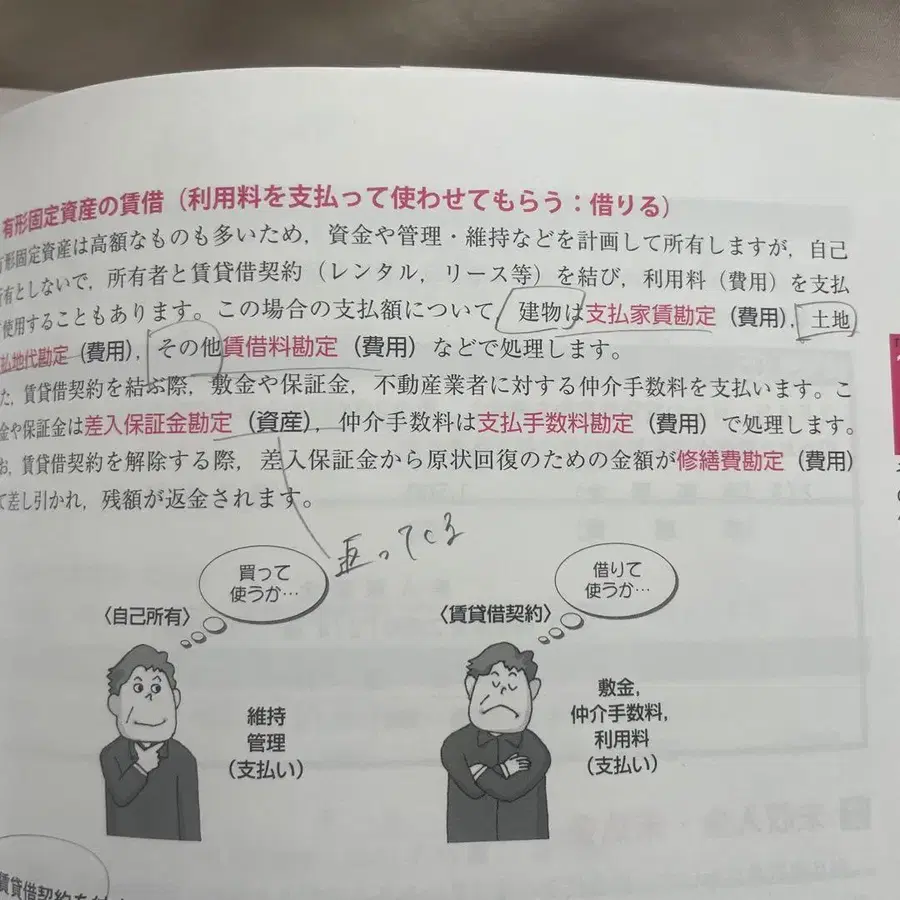 有形固定資産の賃借（利用料を支払って使わせてもらう：借りる）
有形固定資産は高額なものも多いため，資金や管理・維持などを計画して所有しますが，自己
所有としないで，所有者と賃貸借契約（レンタル，リース等）を結び，利用料（費用）を支払
使用することもあります。この場合の支払額について，建物は支払家賃勘定（費用），土地
払地代勘定（費用），その他賃借料勘定（費用）などで処理します。
た，賃貸借契約を結ぶ際，敷金や保証金，不動産業者に対する仲介手数料を支払います。こ
金や保証金は差入保証金勘定（資産），仲介手数料は支払手数料勘定（費用）で処理します。
お，賃貸借契約を解除する際，差入保証金から原状回復のための金額が修繕費勘定（費用）
て差し引かれ，残額が返金されます。
返ってくる
買って
使うか…
〈自己所有〉
維持
管理
（支払い）
借りて
使うか…
〈賃貸借契約〉
敷金，
仲介手数料，
利用料
（支払い）
賃貸借契約を